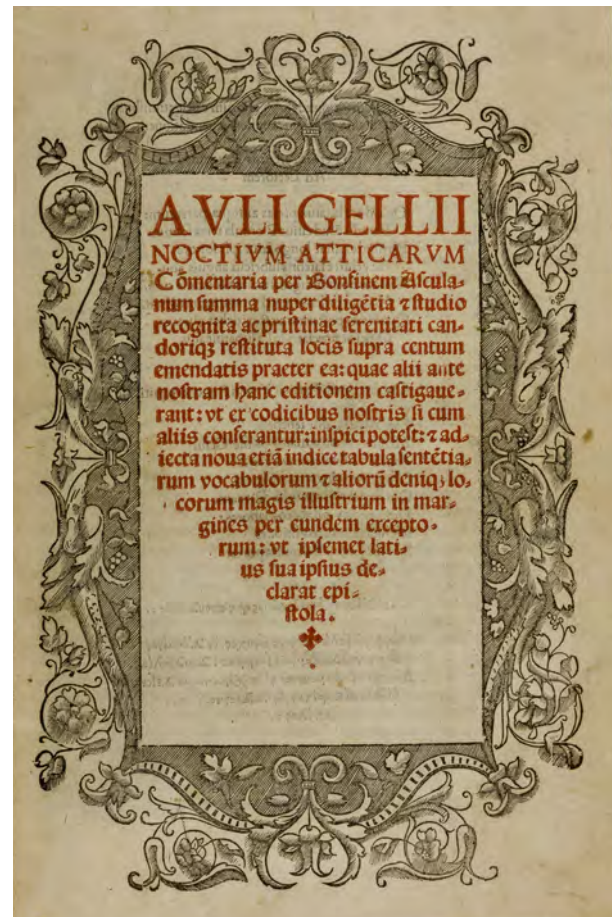 AVLI GELLII
NOCTIVM ATTICARVM
Cōmentaria per Bonfinem Ascula⸗
num summa nuper diligētia ⁊ studio
recognita ac pristinae serenitati can⸗
doriqꝫ restituta locis supra centum
emendatis praeter ea: quae alii ante
nostram hanc editionem castigaue⸗
rant: vt ex codicibus nostris si cum
aliis conferantur: inspici potest: ⁊ ad⸗
iecta noua etiā indice tabula sentētia⸗
rum vocabulorum ⁊ aliorū deniqꝫ lo⸗
corum magis illustrium in mar⸗
gines per eundem excepto⸗
rum: vt ipsemet lati⸗
us sua ipsius de⸗
clarat epi⸗
stola.